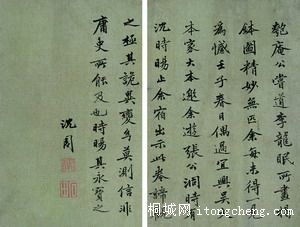 匏庵公嘗道李龍眠所畫揭
鉢圖精妙無匹余每未得見
為憾壬子春日偶過宜興吳
本家大本邀余遊張公洞時有
沈時暘止余宿出示此卷諦閱
之極其詭異變幻莫測信非
庸史所能及也時暘其永寶之
沈周
桐城网 itongcheng.com